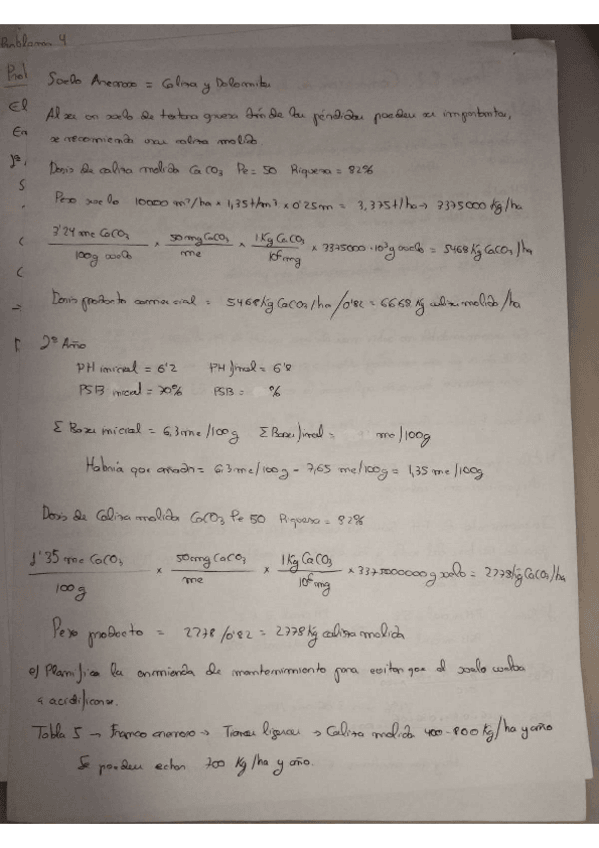 Problema 4
Prol
Suelo Arenoso = Caliza y Dolomita
El
Al ser un suelo de textura gruesa donde las pérdidas pueden ser importantes,
En
se recomienda usar caliza molida.
Dosis de caliza molida CaCO3 Pe = 50 Riqueza = 82%
Peso suelo 10000 m²/ha x 1,35 t/m³ x 0'25m = 3,375 t/ha → 3375000 kg/ha
3'24 me CaCO3 / 100g suelo x 50 mg CaCO3 / me x 1 Kg CaCO3 / 10⁶ mg x 3375000·10³ g suelo = 5468 Kg CaCO3/ha
Dosis producto comercial = 5468 Kg CaCO3/ha /0'82 = 6668 Kg caliza molida/ha
2º Año
PH inicial = 6'2 PH final = 6'8
PSB inicial = 70% PSB = %
Σ Bases inicial = 6,3 me/100g Σ Bases final = me/100g
Habría que añadir = 6,3 me/100g - 7,65 me/100g = 1,35 me/100g
Dosis de Caliza molida CaCO3 Pe 50 Riqueza = 82%
1'35 me CaCO3 / 100g x 50mg CaCO3 / me x 1 Kg CaCO3 / 10⁶ mg x 3375000000 g suelo = 2278 Kg CaCO3/ha
Peso producto = 2278 /0'82 = 2778 Kg caliza molida
e) Planifica la enmienda de mantenimiento para evitar que el suelo vuelva
a acidificarse.
Tabla 5 → Franco arenoso → Tierras ligeras → Caliza molida 400-800 Kg/ha y año
Se pueden echar 700 Kg/ha y año.